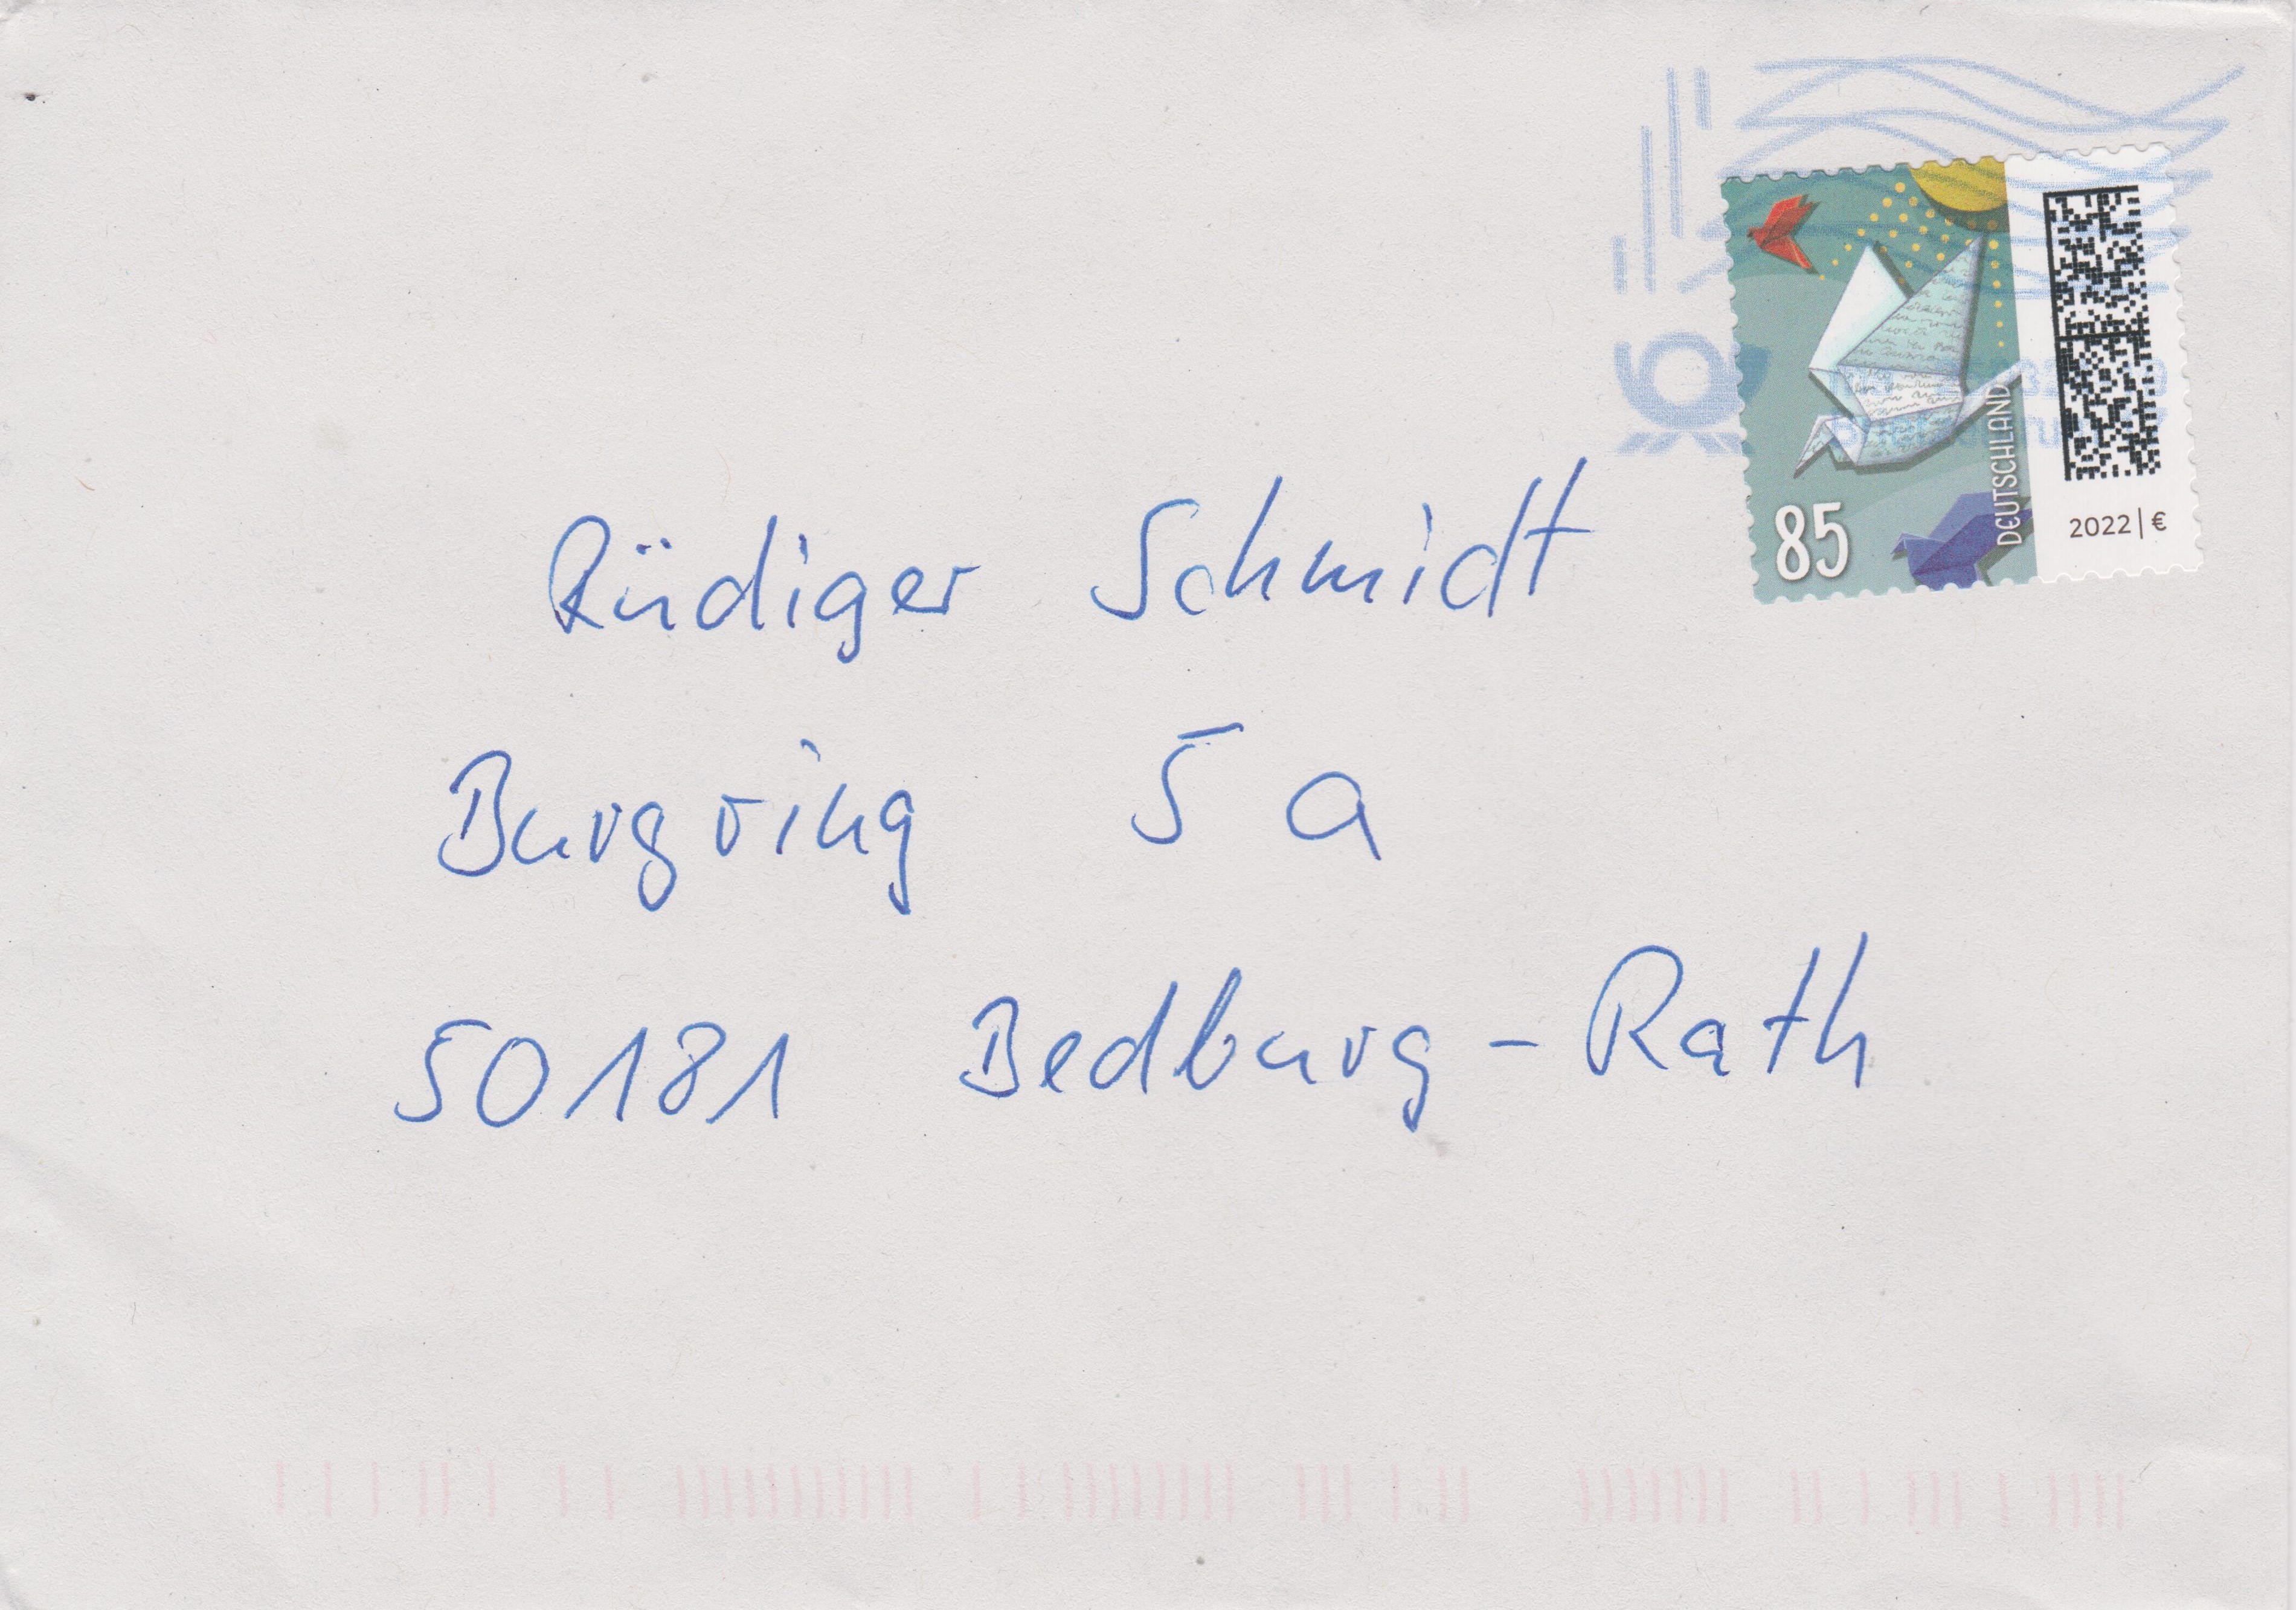 Rüdiger Schmidt
Burgring 5 a
50181 Bedburg-Rath
DEUTSCHLAND
85
2022|€